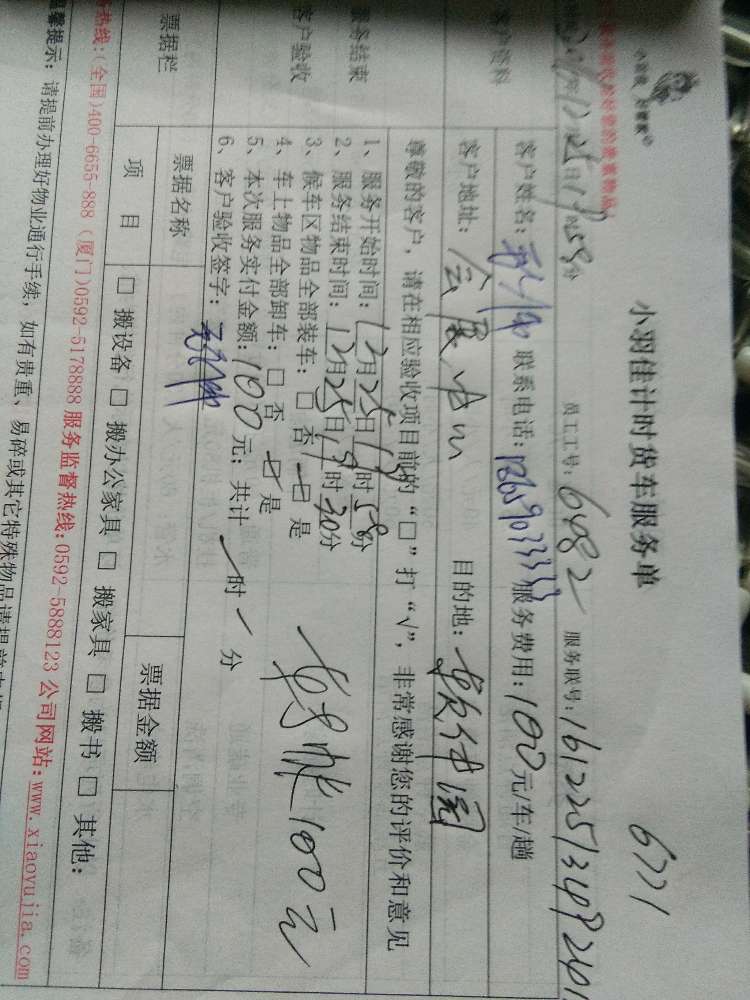 小羽佳计时货车服务单
6771
员工工号: 6482 服务联号: 161225134982401
客户资料
客户姓名: 联系电话: 服务费用: 100元/车/趟
客户地址: 会展中心 目的地: 软件园
尊敬的客户，请在相应验收项目前的“□”打“√”，非常感谢您的评价和意见
服务结束
客户验收
1、服务开始时间: 12月25日17时58分
2、服务结束时间: 12月25日19时30分
3、候车区物品全部装车: □ 否 ☑ 是
4、车上物品全部卸车: □ 否 ☑ 是
5、本次服务实付金额: 100元; 共计 时 分
转账100元
6、客户验收签字:
票据栏
票据名称
票据金额
项 目
□ 搬设备 □ 搬办公家具 □ 搬家具 □ 搬书 □ 其他:
热线:(全国)400-6655-888 (厦门)0592-5178888 服务监督热线: 0592-5888123 公司网站: www.xiaoyujia.com
温馨提示: 请提前办理好物业通行手续，如有贵重、易碎或其它特殊物品请提前